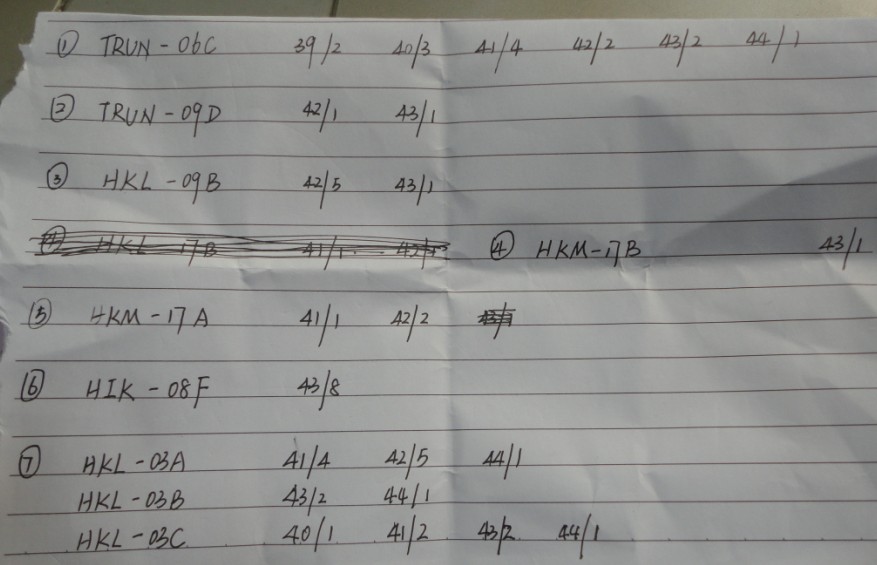 ① TRUN-06C 39/2 40/3 41/4 42/2 43/2 44/1
② TRUN-09D 42/1 43/1
③ HKL-09B 42/5 43/1
④ HKM-17B 43/1
⑤ HKM-17A 41/1 42/2
⑥ HIK-08F 43/8
⑦ HKL-03A 41/4 42/5 44/1
HKL-03B 43/2 44/1
HKL-03C 40/1 41/2 43/2 44/1